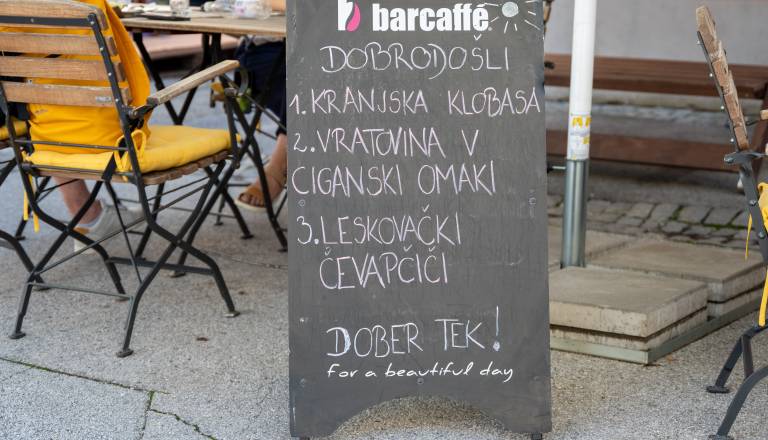 barcaffè
DOBRODOŠLI
1. KRANJSKA KLOBASA
2. VRATOVINA V
CIGANSKI OMAKI
3. LESKOVAČKI
ČEVAPČIČI
DOBER TEK!
for a beautiful day